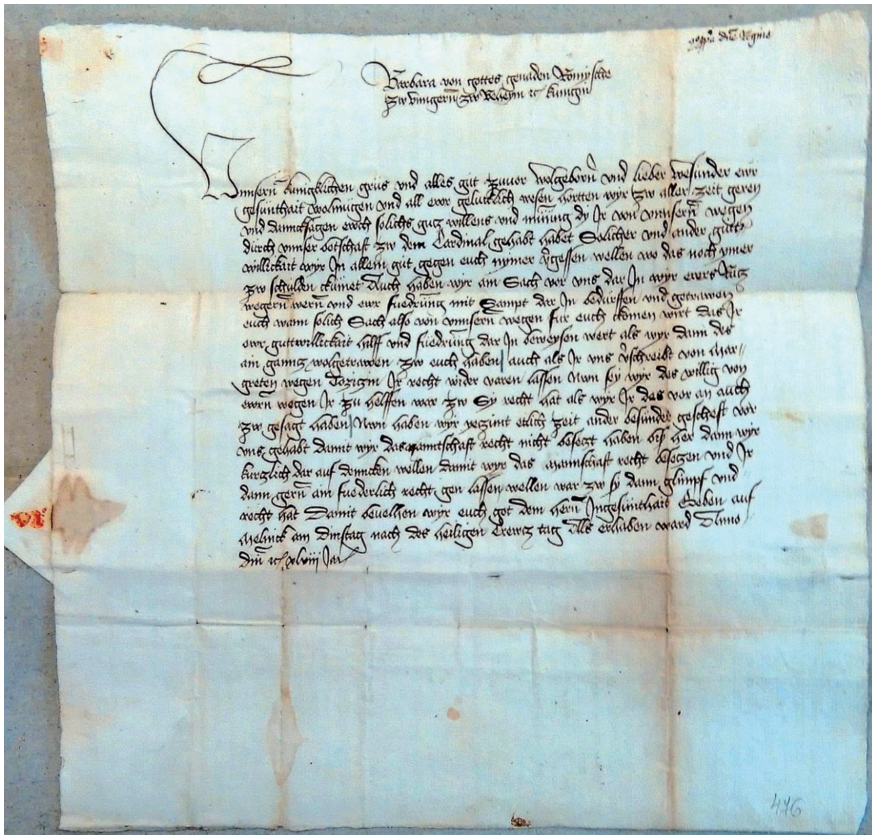 Barbara von gottes genaden Römyſche
zw vnngern zw Beheym ꝛc kunigin
Vnnsern kunigklichen grus vnd alles gut zuuor wolgeborn vnd lieder besunder ewr
gesunthait wolmugen vnd all ewr gelucklich wesen hortten wyr zw aller zeit geren
vnd dannckſagen ewch solichs gutz willens vnd dy Ir von vnnsern wegen
durch vnnser botschaft zw dem Cardinal gehabt habet Solicher vnd ander gutty
willickait wyr In allem gut gegen euch nymer vergessen wellen wo das noch ymer
zw schulden kumet Auch haben wyr am Sach vor vns dar In wyr ewers
wegern wern vnd ewr fuedrung mit Sampt dar In bedurffen vnd getrawen
euch wann solich Sach also von vnnsern wegen fur euch komen wirt das Ir
ewr guttwillickait hilff vnd fuedrung dar In beweysen wert als wyr dann des
ain gantz wolgetrawen zw euch haben auch als Ir vns verschreibt von Mar-
greten wegen Ir recht wider varen lassen Nwn sey wyr des willig von
ewrn wegen Ir zu helffen war zw Sy recht hat als wyr Ir das vor an auch
zw gesagt haben Nwn haben wyr yeczunt etlich zeit ander besunder gescheft vor
vns gehabt damit wyr das manschaft recht nicht beseczt haben bis her dann wyr
kurczlich dar auf denncken wellen damit wyr das Mannschaft recht beseczen vnd Ir
dann gern ain fuederlich recht gen lassen wellen war zw sy dann glimpf vnd
recht hat Damit beuelhen wyr euch got dem hern Ingesunthait Geben auf
Melnick am Dinstag nach des heiligen Crewcz tag Als erhaben ward Anno
dm ꝛc xlviii Jar
476